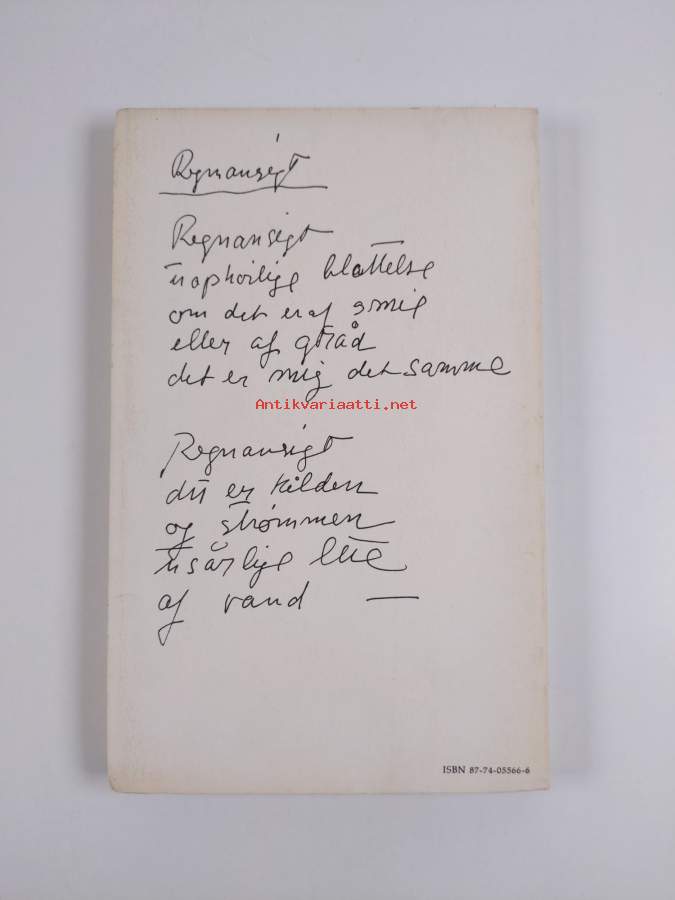 Regnansigt
Regnansigt
uophørlige blottelse
om det er af smil
eller af gråd
det er mig det samme
Antikvariaatti.net
Regnansigt
du er kilden
og strømmen
usårlige lue
af vand —
ISBN 87-74-05566-6